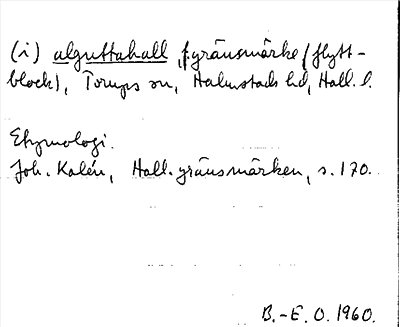 (i) alguttahall, f. gränsmärke (flytt-
block), Torups sn, Halmstads hd, Hall. l.
Etymologi.
Joh. Kalén, Hall. gränsmärken, s. 170.
B.-E. O. 1960.